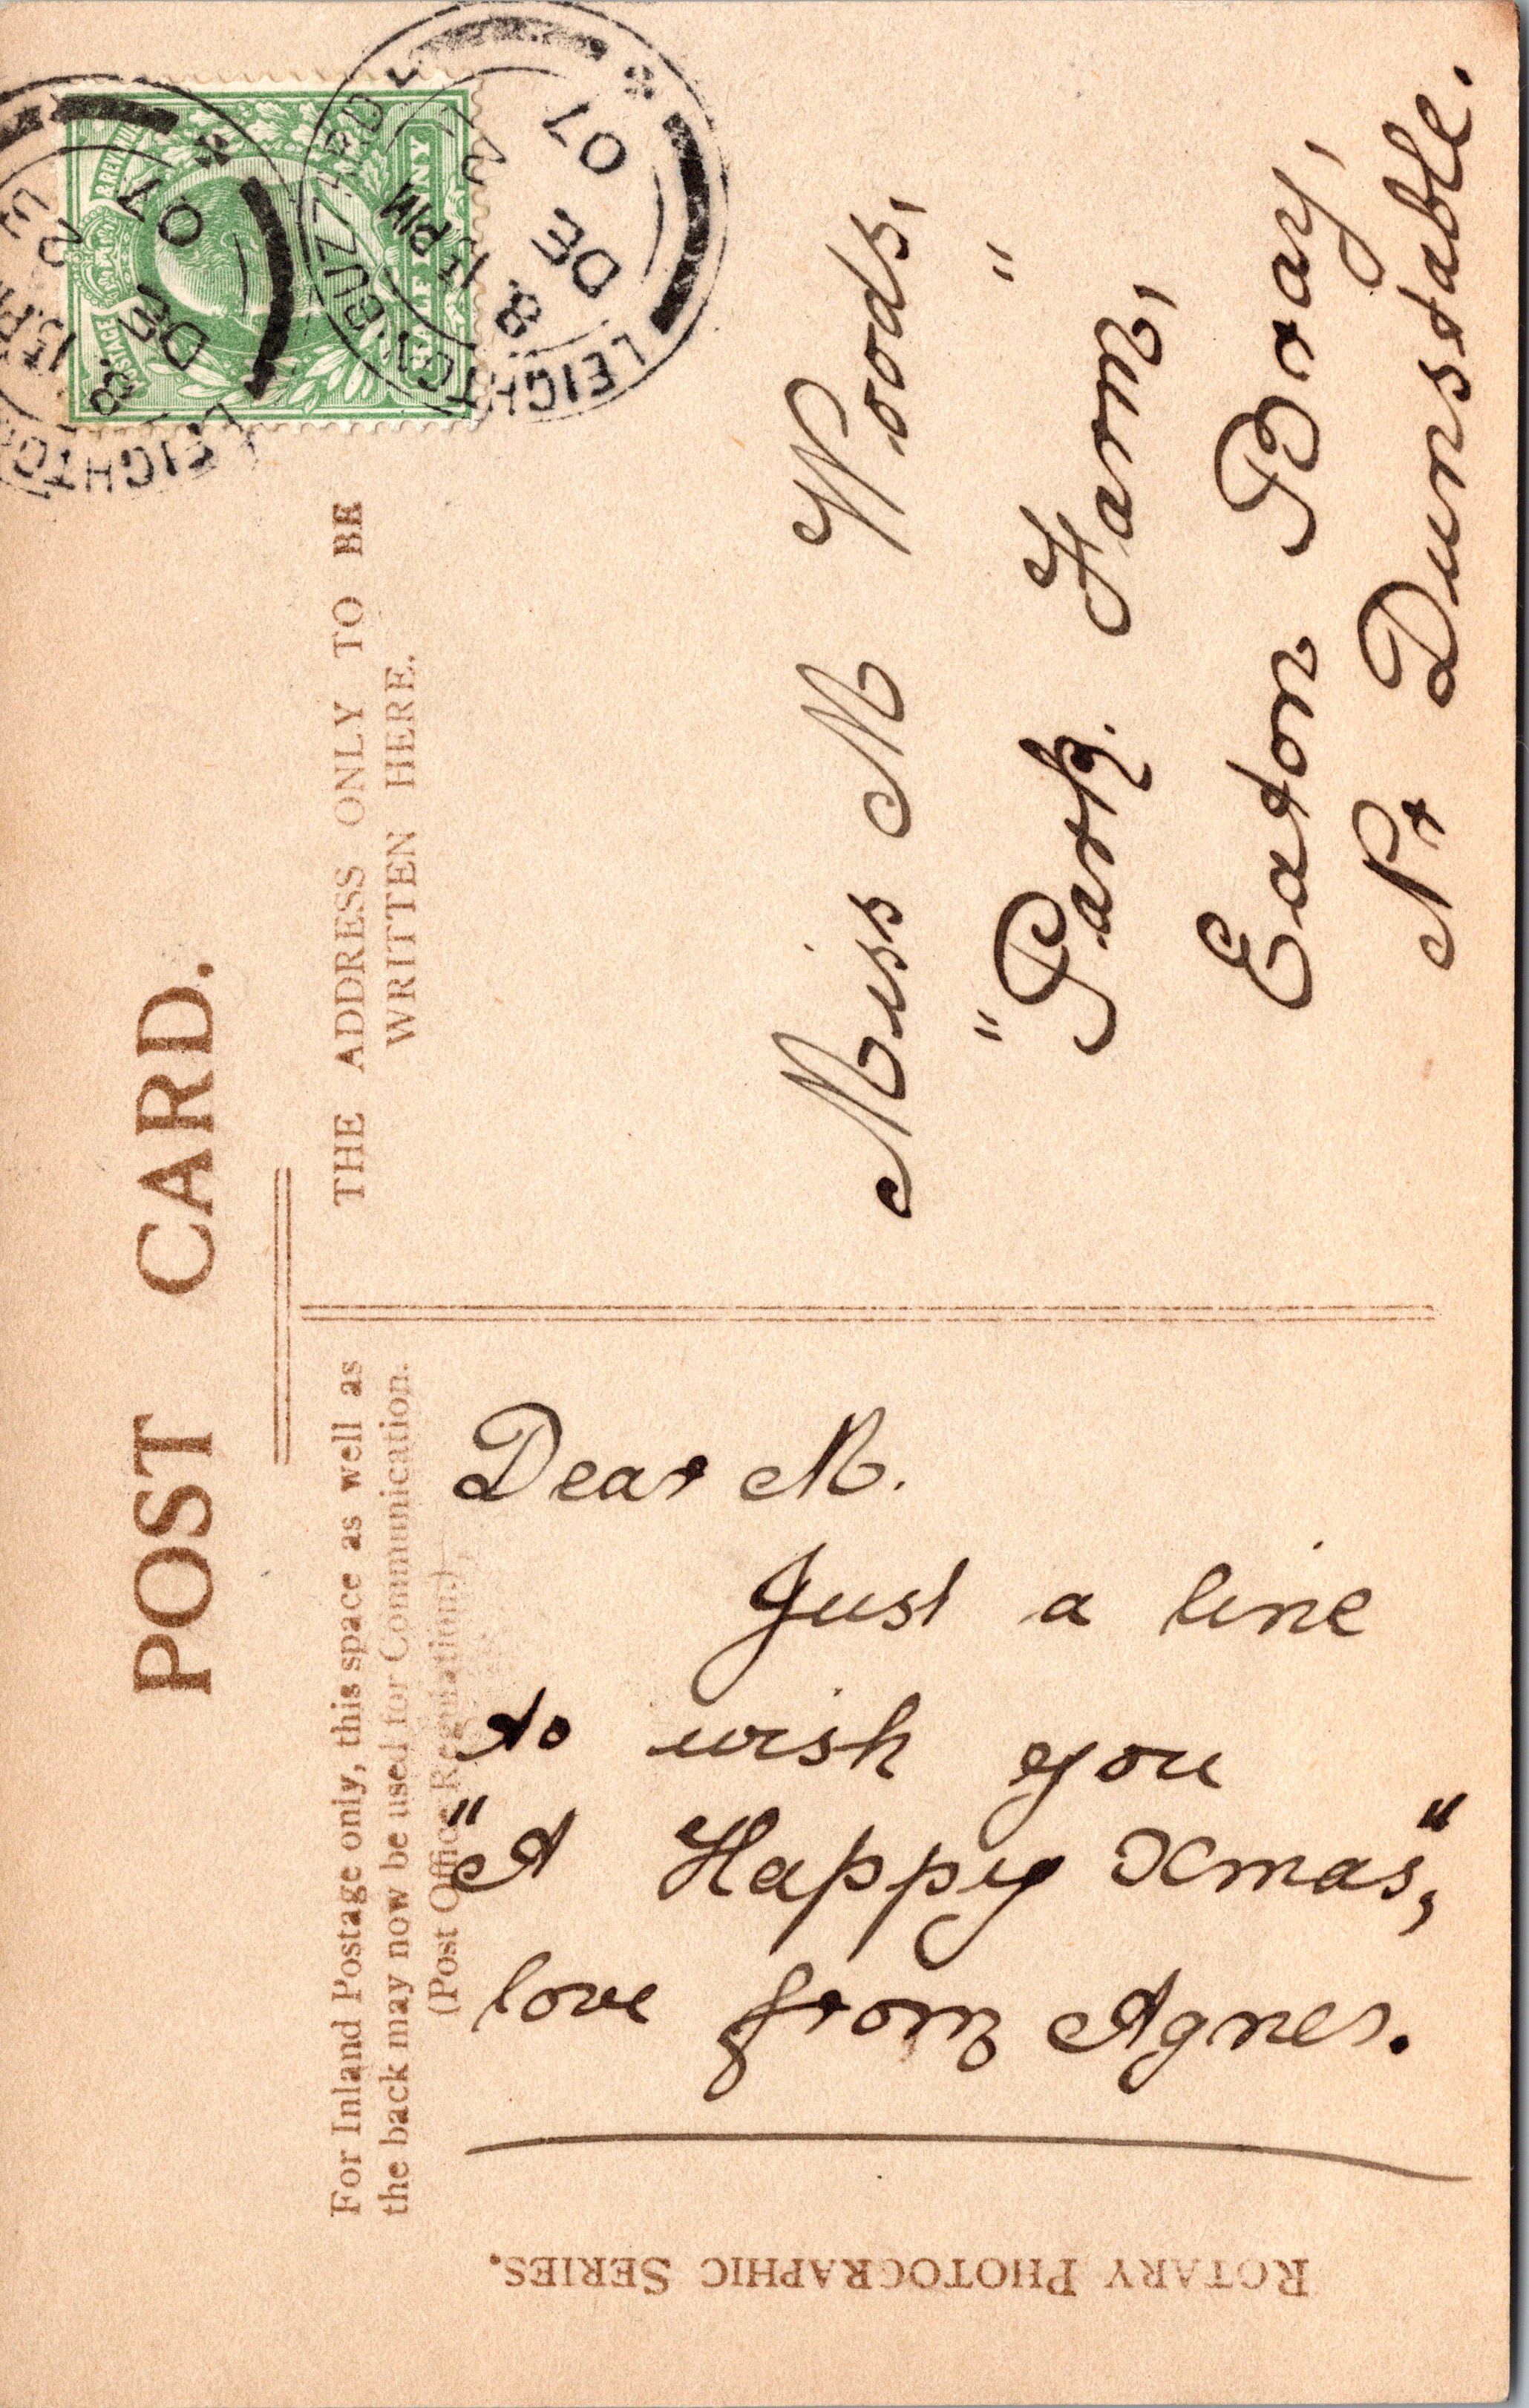 POST CARD.
For Inland Postage only, this space as well as
the back may now be used for Communication.
(Post Office Regulation.)
THE ADDRESS ONLY TO BE
WRITTEN HERE.
Dear M.
Just a line
to wish you
"A Happy Xmas",
love from Agnes.
Miss M Woods,
"Park Farm,"
Eaton Bray,
Nr Dunstable.
ROTARY PHOTOGRAPHIC SERIES.
POSTAGE & REVENUE
HALF PENNY
LEIGHTON BUZZARD
8.15PM
DE
07
LEIGHTON
8.15PM
DE 23
07